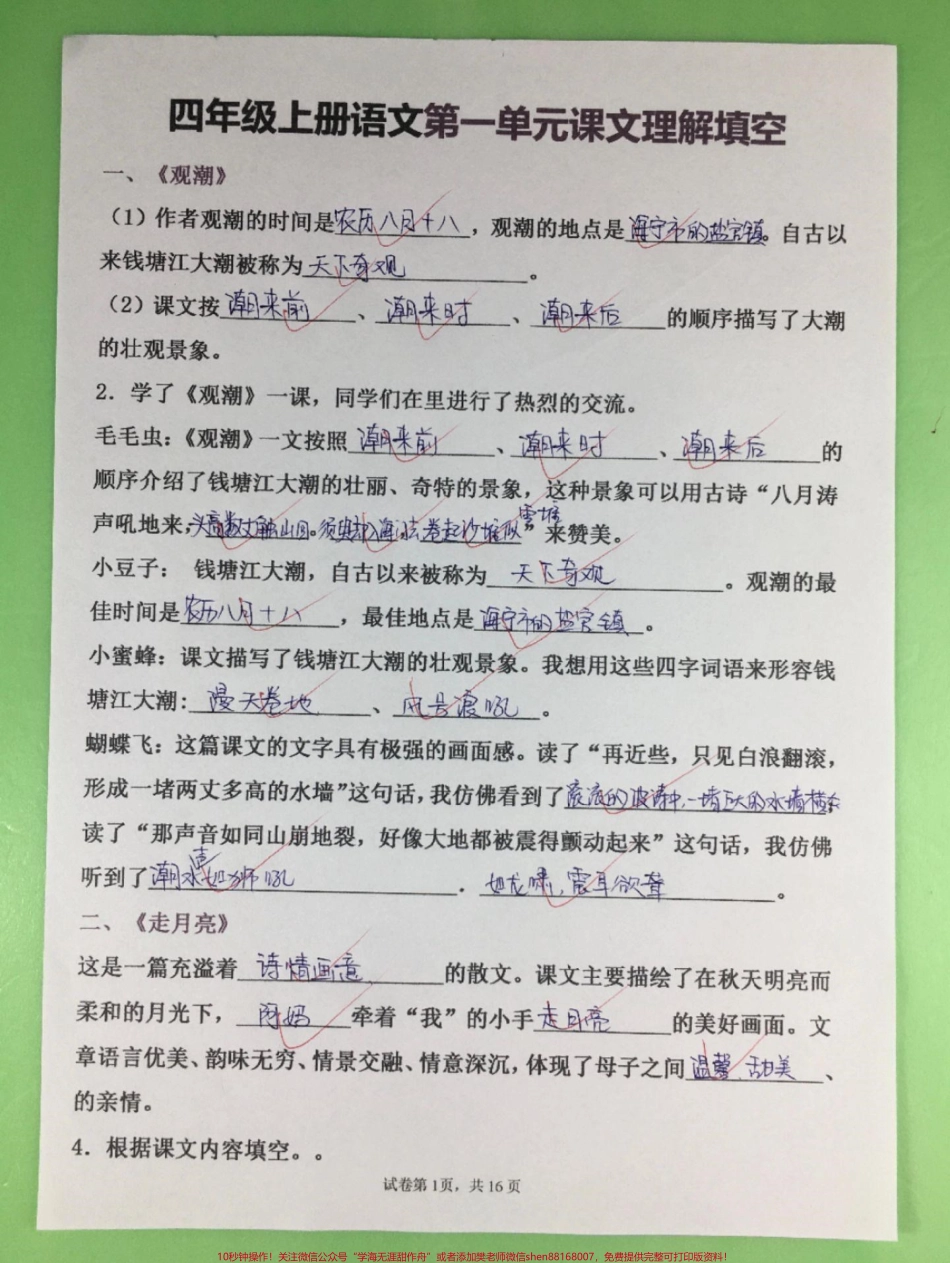 四年级上册语文第一单元课文理解填空
一、《观潮》
（1）作者观潮的时间是农历八月十八，观潮的地点是海宁市的盐官镇。自古以
来钱塘江大潮被称为天下奇观。
（2）课文按潮来前、潮来时、潮来后的顺序描写了大潮
的壮观景象。
2．学了《观潮》一课，同学们在里进行了热烈的交流。
毛毛虫：《观潮》一文按照潮来前、潮来时、潮来后的
顺序介绍了钱塘江大潮的壮丽、奇特的景象，这种景象可以用古诗“八月涛
声吼地来，头高数丈触山回。须臾却入海门去，卷起沙堆似雪堆”来赞美。
小豆子： 钱塘江大潮，自古以来被称为天下奇观。观潮的最
佳时间是农历八月十八，最佳地点是海宁市的盐官镇。
小蜜蜂：课文描写了钱塘江大潮的壮观景象。我想用这些四字词语来形容钱
塘江大潮：漫天卷地、风号浪吼。
蝴蝶飞：这篇课文的文字具有极强的画面感。读了“再近些，只见白浪翻滚，
形成一堵两丈多高的水墙”这句话，我仿佛看到了滚滚的波涛中，一堵巨大的水墙横
读了“那声音如同山崩地裂，好像大地都被震得颤动起来”这句话，我仿佛
听到了潮水声如狮吼．如龙啸，震耳欲聋。
二、《走月亮》
这是一篇充溢着诗情画意的散文。课文主要描绘了在秋天明亮而
柔和的月光下，阿妈牵着“我”的小手走月亮的美好画面。文
章语言优美、韵味无穷、情景交融、情意深沉，体现了母子之间温馨、甜美、
的亲情。
4．根据课文内容填空。。
试卷第1页，共16页
10秒钟操作！关注微信公众号“学海无涯甜作舟”或者添加樊老师微信shen88168007，免费提供完整可打印版资料！